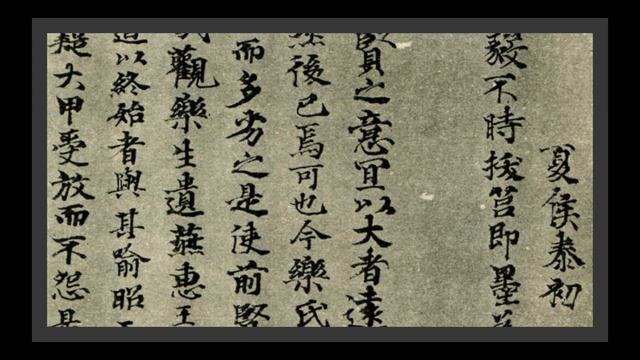 夏侯泰初
毅不時拔莒即墨
賢之意宜以大者遠
然後已焉可也今樂氏
而多劣之是使前賢
觀樂生遺燕惠王
道以終始者與其喻昭王
疑大甲受放而不怨是